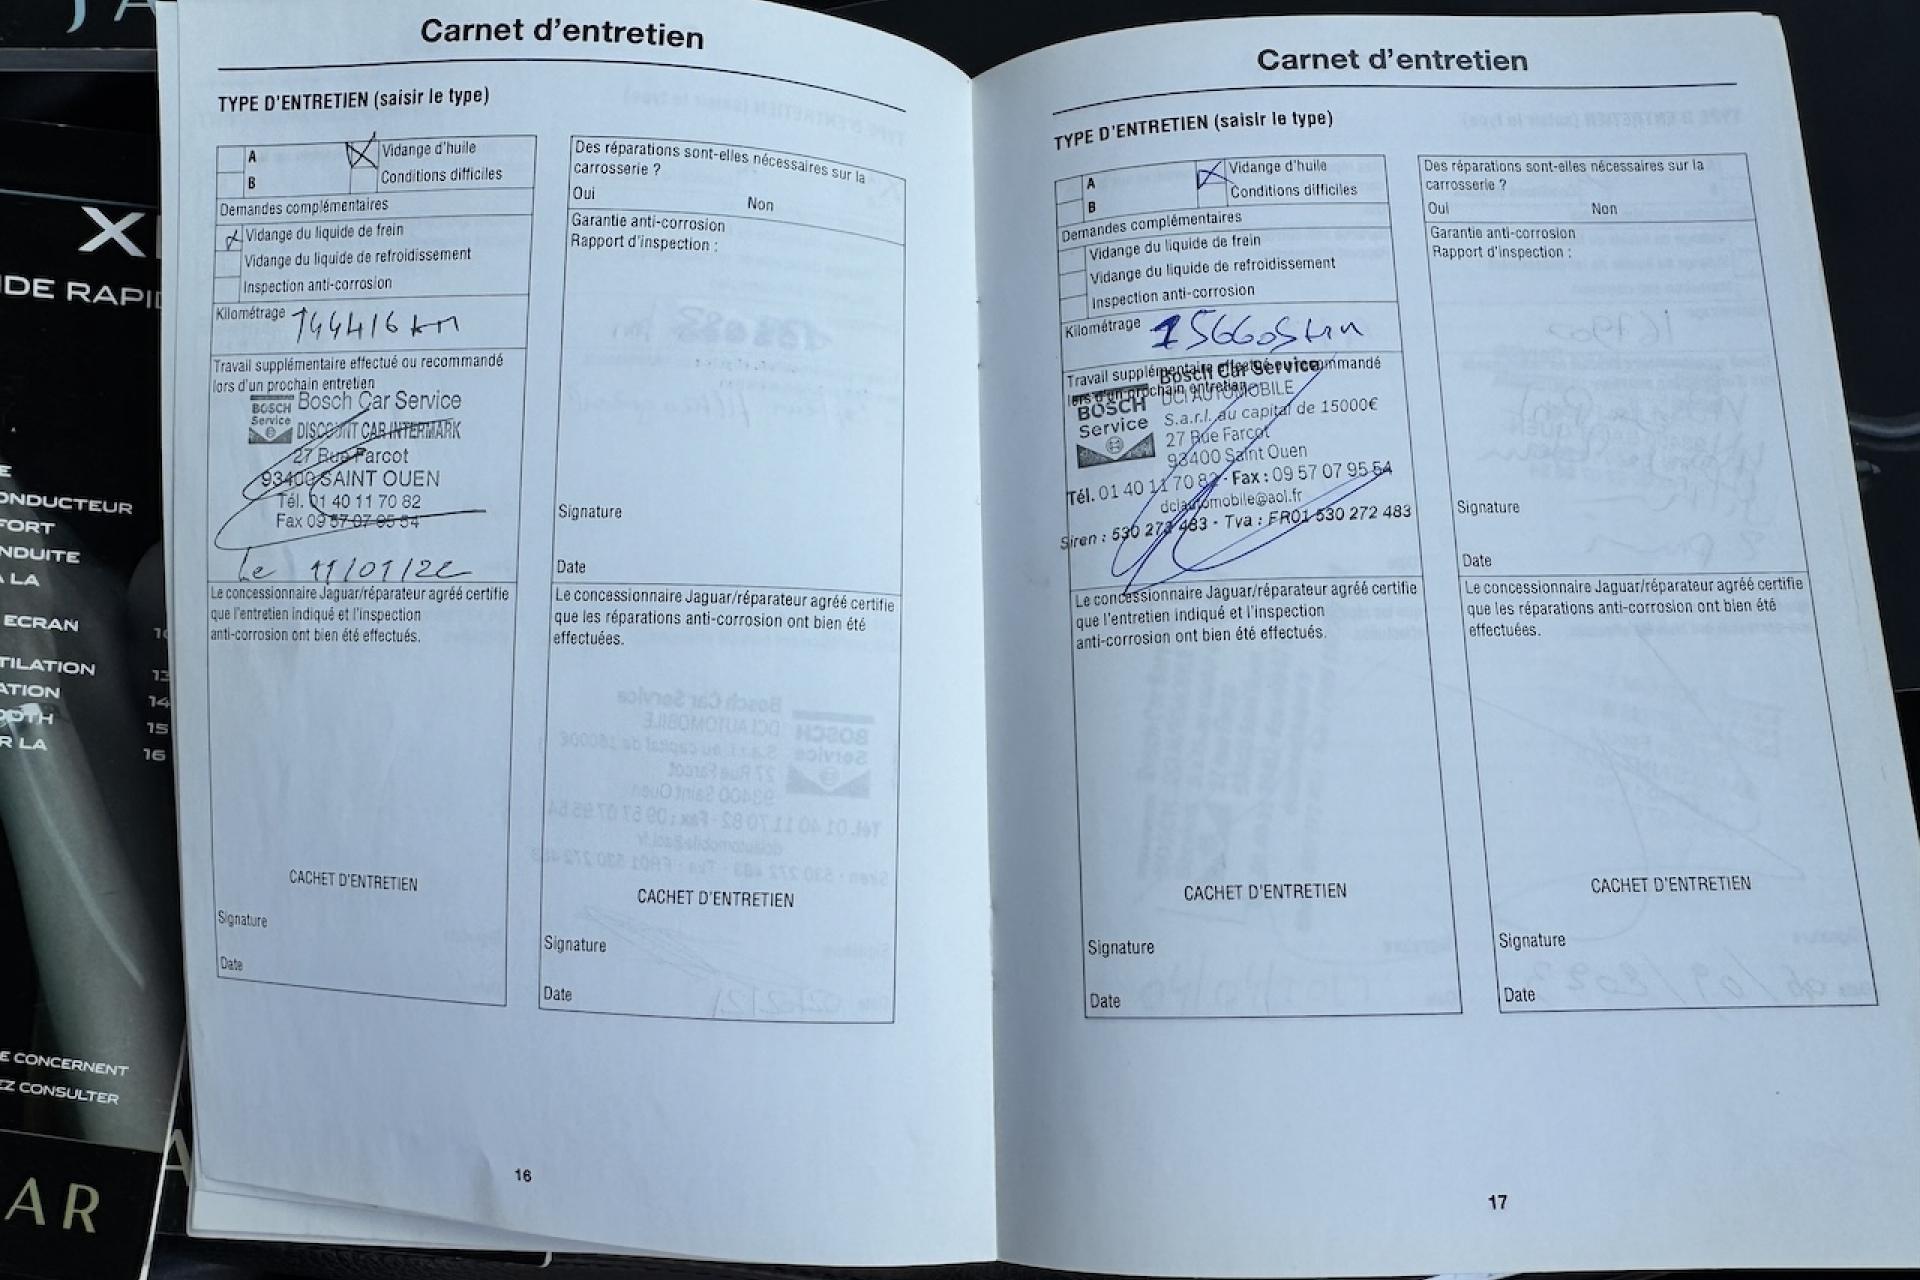 Carnet d'entretien
TYPE D'ENTRETIEN (saisir le type)
A
Vidange d'huile
B
Conditions difficiles
Demandes complémentaires
Vidange du liquide de frein
Vidange du liquide de refroidissement
Inspection anti-corrosion
Kilométrage 144416 km
Travail supplémentaire effectué ou recommandé
lors d'un prochain entretien
BOSCH
Service
Bosch Car Service
DISCOUNT CAR INTERMARK
27 Rue Farcot
93400 SAINT OUEN
Tél. 01 40 11 70 82
Fax 09 57 07 95 54
Le 11/01/22
Le concessionnaire Jaguar/réparateur agréé certifie
que l'entretien indiqué et l'inspection
anti-corrosion ont bien été effectués.
CACHET D'ENTRETIEN
Signature
Date
Des réparations sont-elles nécessaires sur la
carrosserie ?
Oui Non
Garantie anti-corrosion
Rapport d'inspection :
Signature
Date
Le concessionnaire Jaguar/réparateur agréé certifie
que les réparations anti-corrosion ont bien été
effectuées.
CACHET D'ENTRETIEN
Signature
Date
16
Carnet d'entretien
TYPE D'ENTRETIEN (saisir le type)
A
Vidange d'huile
B
Conditions difficiles
Demandes complémentaires
Vidange du liquide de frein
Vidange du liquide de refroidissement
Inspection anti-corrosion
Kilométrage 156605 km
Travail supplémentaire effectué ou recommandé
lors d'un prochain entretien
BOSCH
Service
Bosch Car Service
DCI AUTOMOBILE
S.a.r.l. au capital de 15000€
27 Rue Farcot
93400 Saint Ouen
Tél. 01 40 11 70 82 - Fax : 09 57 07 95 54
dciautomobile@aol.fr
Siren : 530 272 483 - Tva : FR01 530 272 483
Le concessionnaire Jaguar/réparateur agréé certifie
que l'entretien indiqué et l'inspection
anti-corrosion ont bien été effectués.
CACHET D'ENTRETIEN
Signature
Date
Des réparations sont-elles nécessaires sur la
carrosserie ?
Oui Non
Garantie anti-corrosion
Rapport d'inspection :
Signature
Date
Le concessionnaire Jaguar/réparateur agréé certifie
que les réparations anti-corrosion ont bien été
effectuées.
CACHET D'ENTRETIEN
Signature
Date
17
ONDUCTEUR
FORT
NDUITE
LA
ECRAN
TILATION
13
ATION
14
15
R LA
16
E CONCERNENT
EZ CONSULTER
AR